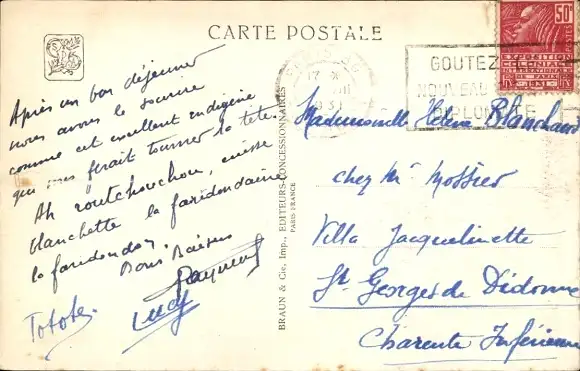 CARTE POSTALE
Après un bon déjeuner
nous avons le sourire
comme cet excellent indigène
qui vous ferait tourner la tête.
Ah routchouchou, cuisse
blanchette la faridondaine
la faridondon.
Bons Baisers
Raymond
Lucy
Totote.
BRAUN & Cie, Imp., EDITEURS-CONCESSIONNAIRES
PARIS-FRANCE
50c
POSTES
EXPOSITION
COLONIALE
INTERNATIONALE
DE PARIS
1931
17 X
1931
GOUTEZ
NOUVEAU
Mademoiselle Hélène Blanchard
chez Mr Mossier
Villa Jacquelinette
St Georges de Didonne
Charente Inférieure